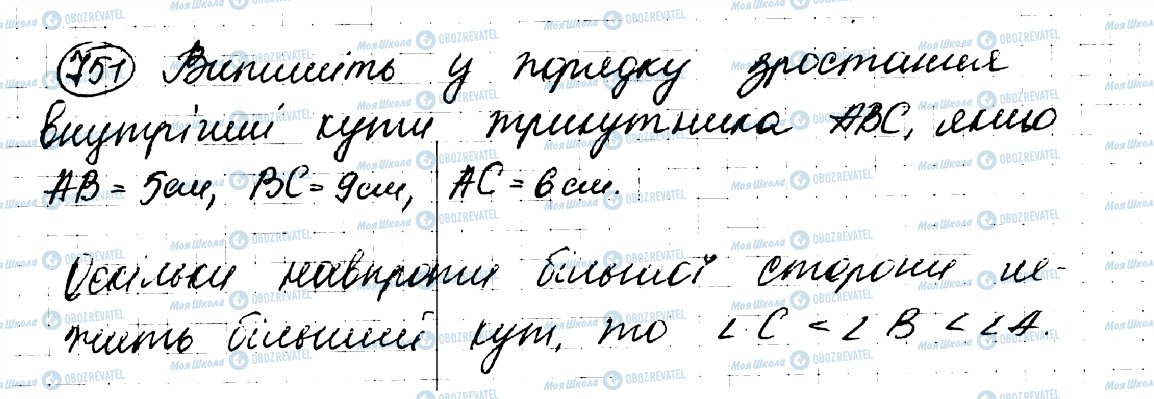 751 Випишіть у порядку зростання
внутрішні кути трикутника ABC, якщо
AB = 5 см, BC = 9 см, AC = 6 см.
Оскільки навпроти більшої сторони ле-
жить більший кут, то ∠C < ∠B < ∠A.